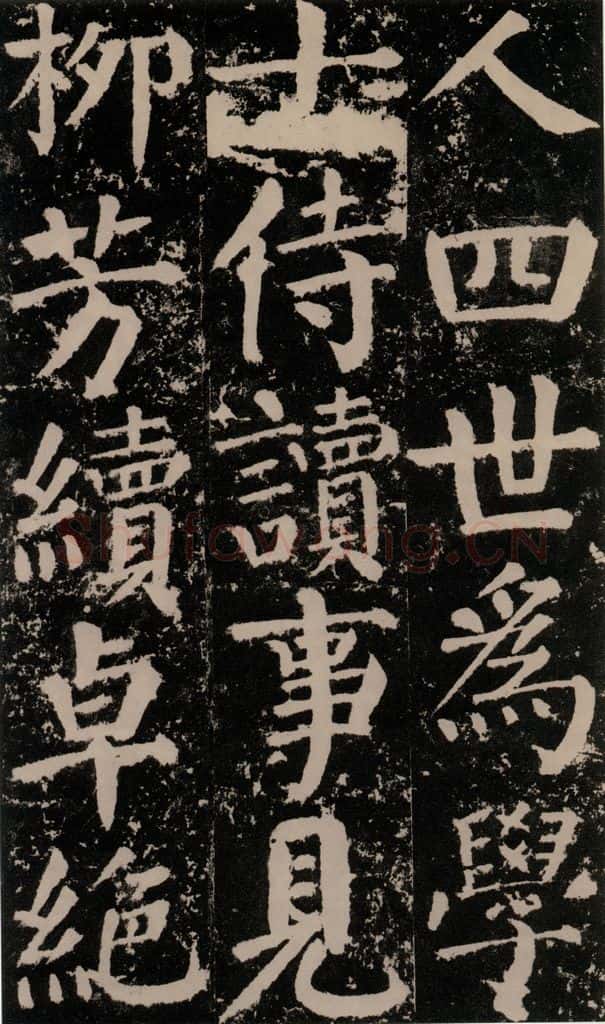 人四世爲學
士侍讀事見
柳芳續卓絕
Shufawang.CN